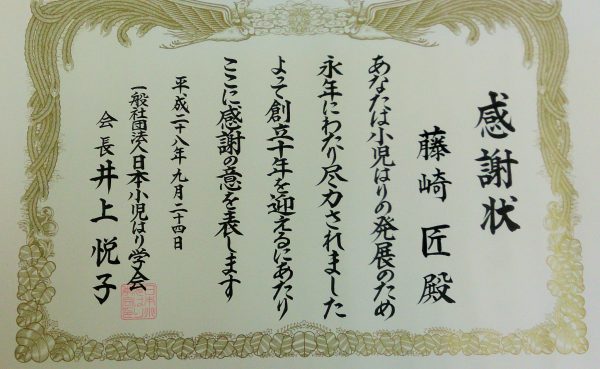 感謝状
藤崎 匠 殿
あなたは小児はりの発展のため
永年にわたり尽力されました
よって創立十年を迎えるにあたり
ここに感謝の意を表します
平成二十八年九月二十四日
一般社団法人日本小児はり学会
会長 井上 悦子